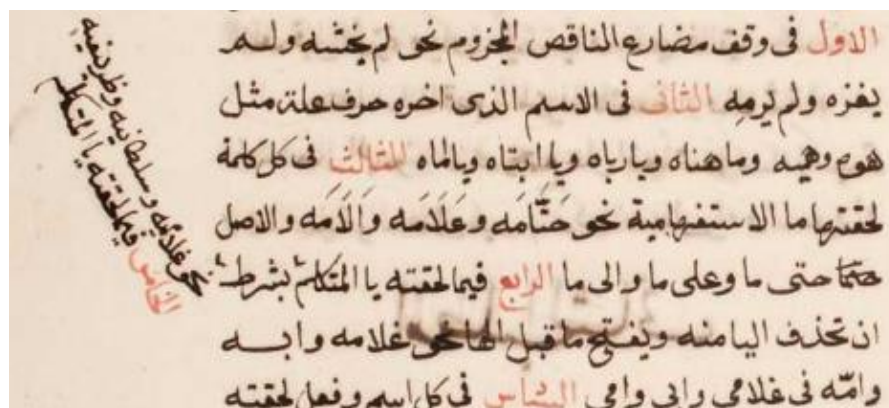 الاول فى وقف مضارع الناقص المجزوم نحو لم يخشه ولم
يغزه ولم يرمه الثانى فى الاسم الذى اخره حرف علة مثل
هوه وهيه وماهناه ويارباه ويا ابتاه ويااماه الثالث فى كل كلمة
لحقتها ما الاستفهامية نحو حَتَّامَه وعَلَامَه وَالَامَه والاصل
حتى ما وعلى ما والى ما الرابع فيما لحقته يا المتكلم بشرط
ان تحذف اليا منه ويفتح ما قبل الها نحو غلامه وابه
وامّه فى غلامى وابى وامى السادس فى كل اسم وفعل لحقته
الخامس فيما لحقته يا المتكلم
نحو غلاميه وسلطانيه وظريفيه